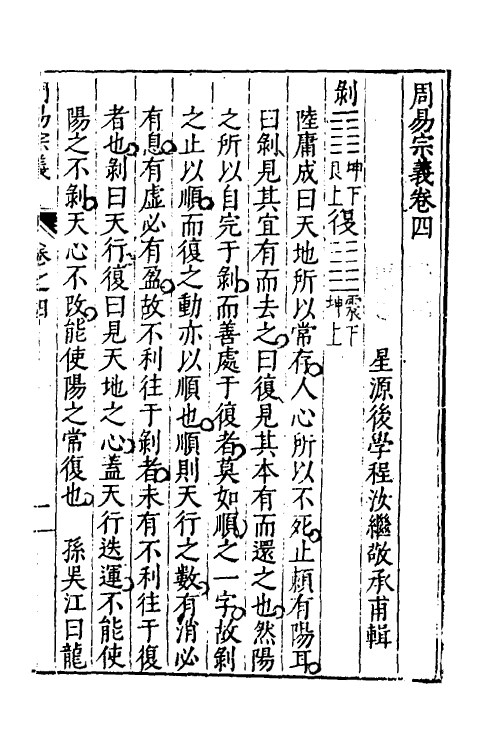 周易宗義卷四
星源後學程汝繼敬承甫輯
剝 坤下艮上 復 震下坤上
陸庸成曰天地所以常存人心所以不死止賴有陽耳
曰剝見其宜有而去之曰復見其本有而還之也然陽
之所以自完于剝而善處于復者莫如順之一字故剝
之止以順而復之動亦以順也順則天行之數有消必
有息有虛必有盈故不利往于剝者未有不利往于復
者也剝曰天行復曰見天地之心蓋天行迭運不能使
陽之不剝天心不改能使陽之常復也 孫吳江曰龍
周易宗義 卷之四 一